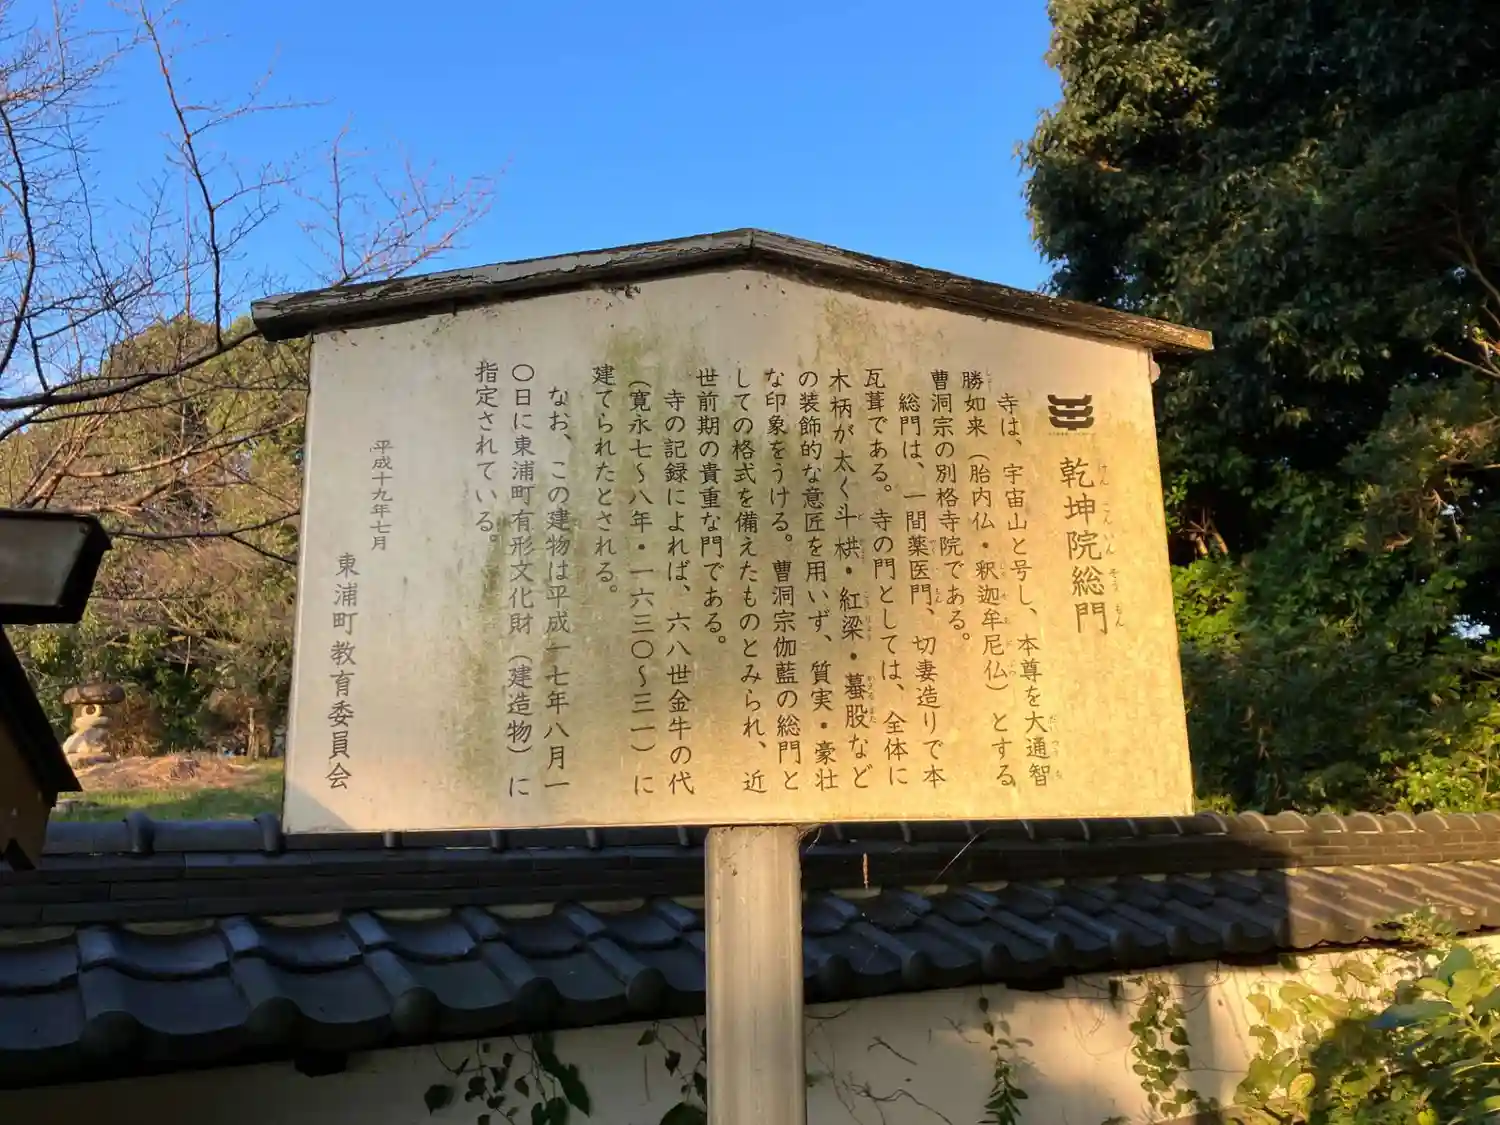 乾坤院総門
けんこんいんそうもん
寺は、宇宙山と号し、本尊を大通智
勝如来（胎内仏・釈迦牟尼仏）とする
曹洞宗の別格寺院である。
総門は、一間薬医門、切妻造りで本
瓦葺である。寺の門としては、全体に
木柄が太く斗栱・紅梁・蟇股など
の装飾的な意匠を用いず、質実・豪壮
な印象をうける。曹洞宗伽藍の総門と
しての格式を備えたものとみられ、近
世前期の貴重な門である。
寺の記録によれば、六八世金牛の代
（寛永七〜八年・一六三〇〜三一）に
建てられたとされる。
なお、この建物は平成一七年八月一
〇日に東浦町有形文化財（建造物）に
指定されている。
平成十九年七月
東浦町教育委員会